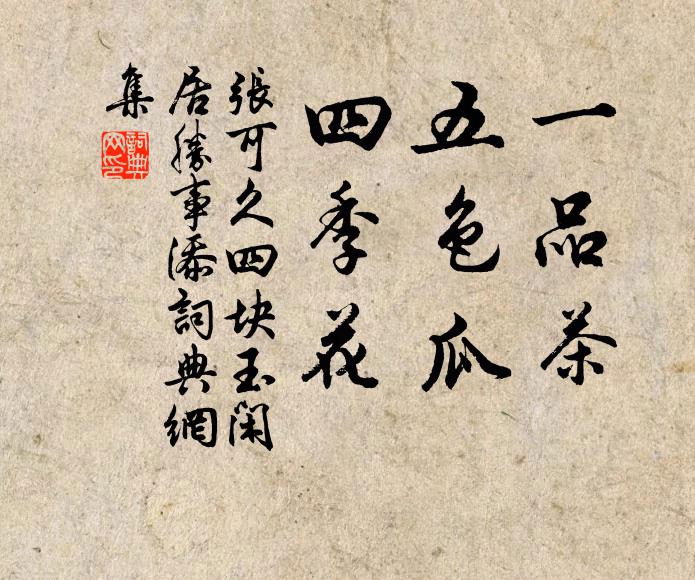 一品茶
五色瓜
四季花
張可久四块玉闲
居勝事添詞典網
集
詞典网印